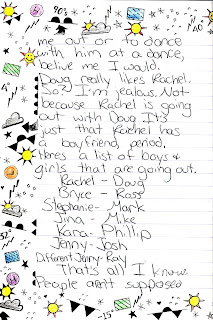 me out or to dance
with him at a dance,
belive me I would.
Doug really likes Rachel.
So? I'm jealous. Not
because Rachel is going
out with Doug It's
just that Rachel has
a boyfriend period.
Heres a list of boys &
girls that are going out.
Rachel - Doug
Bryce - Ross
Stephanie - Mark
Jina - Mike
Kara - Phillip
Jenny - Josh
Different Jenny - Ray
That's all I know
People aren't supposed